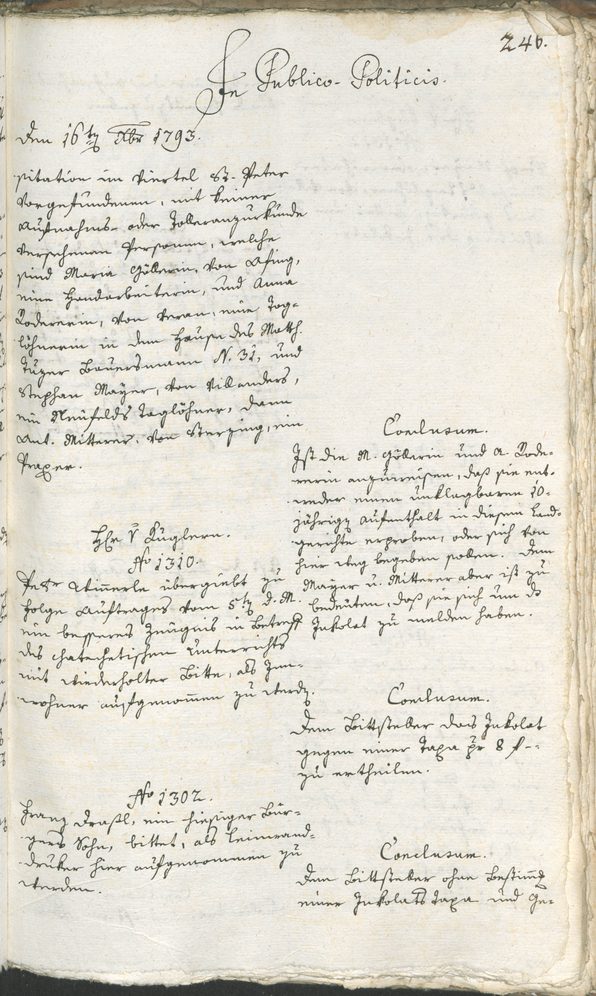 246.
In Publico-Politicis.
Den 16ten Xbr 1793.
sitation im Viertel St. Peter
vorgefundenen, mit keiner
Aufnahms- oder Tolleranzurkunde
versehenen Personen, welche
sind Maria Göllerin, von Afing,
eine Handarbeiterin, und Anna
Rodererin, von Veran, eine Tag-
löhnerin in dem Hause des Math.
Tuzer Bauersmann N. 31, und
Stephan Mayer, von Villanders,
ein Neufelds Taglöhner, dann
Ant. Mitterer, von Sterzing, ein
Praxer.
Conclusum.
Ist die M. Göllerin und A. Rode-
rerin anzuweisen, daß sie ent-
weder einen unklagbaren 10-
jährigen Aufenthalt in diesem Land-
gerichte erproben, oder sich von
hier weg begeben sollen. Dem
Mayer u. Mitterer aber ist zu
bedeuten, daß sie sich um das
Inkolat zu melden haben.
Hr. v. Küglern.
No 1310.
Peter Wimmerle übergiebt zu
Folge Auftrages vom 5ten d. M.
ein besseres Zeugnis in Betreff
des chatechetischen Unterrichts
mit wiederholter Bitte, als Inn-
wohner aufgenommen zu werden.
Conclusum.
Dem Bittsteller das Inkolat
gegen einer Taxa pr 8 f --
zu ertheilen.
No 1302.
Franz Draßl, ein hiesiger Bür-
gers Sohn, bittet, als Leinwand-
druker hier aufgenommen zu
werden.
Conclusum.
Dem Bittsteller ohne Bestimmung
einer Inkolats Taxa und Ge-